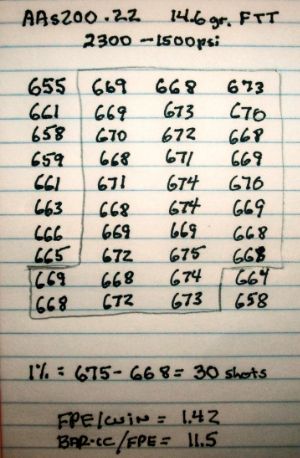 AAS200 .22 14.6 gr. FTT
2300 - 1500 psi
655 669 668 673
661 669 673 670
658 670 672 668
659 668 671 669
661 671 674 670
663 668 674 669
666 669 669 668
665 672 675 668
669 668 674 664
668 672 673 658
1% = 675 - 668 = 30 shots
FPE/cuin = 1.42
BAR-cc/FPE = 11.5